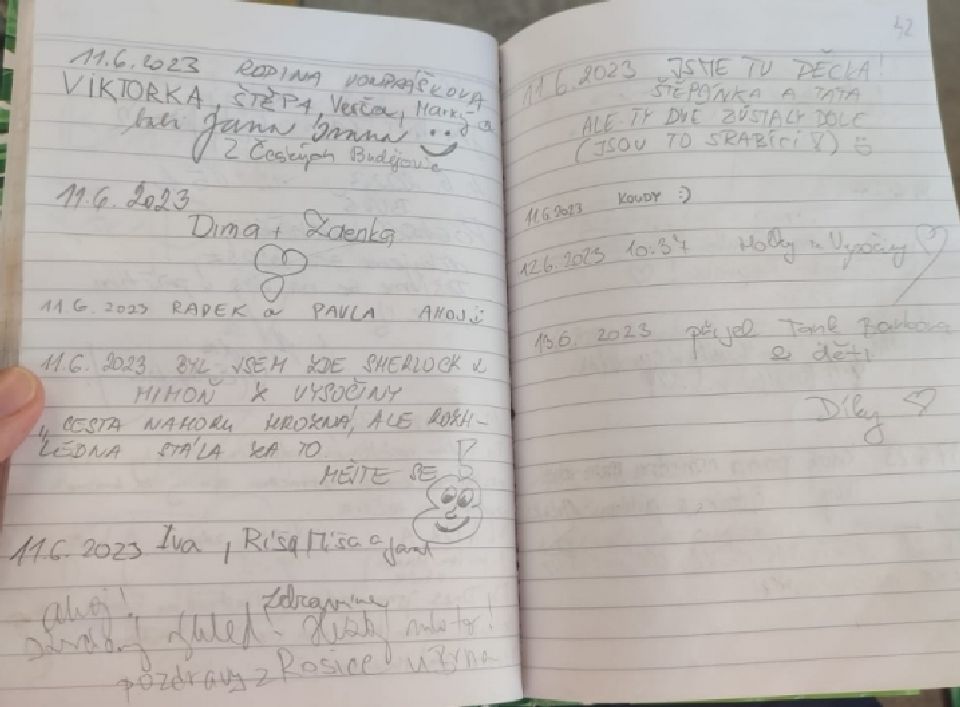 11.6.2023 RODINA
VIKTORKA, ŠTĚPA, Verča,
Jana
Z Českých Budějovic
11.6.2023
Dima + Zdenka
11.6.2023 RADEK a PAVLA AHOJ
11.6.2023 BYL JSEM ZDE SHERLOCK &
MIMOŇ Z VYSOČINY
„CESTA NAHORU HROZNÁ, ALE ROZH-
LEDNA STÁLA ZA TO
MĚJTE SE
11.6.2023 Iva, Ríša, Míša a
ahoj! Zdravíme
místo!
pozdravy z Rosice u Brna
42
11.6.2023 JSME TU DĚCKA!
ŠTĚPÁNKA A TÁTA
ALE TY DVĚ ZŮSTALY DOLE
(JSOU TO SRABÍCI!)
11.6.2023 KOUDY :)
12.6.2023 10:37 Holky z Vysočiny
13.6. 2023 přijel
a děti
Díky